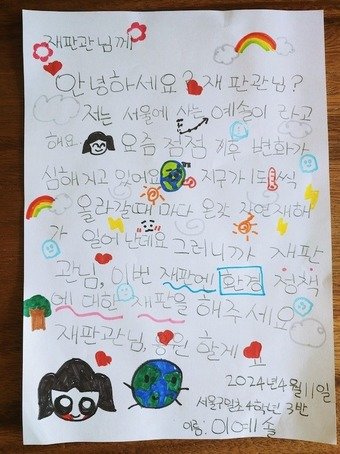 재판관님께
안녕하세요? 재판관님?
저는 서울에 사는 예솔이 라고
해요.. 요즘 점점 기후 변화가
심해지고 있어요 지구가 1도씩
올라갈때 마다 온갖 자연재해
가 일어난데요 그러니까 재판
관님, 이번 재판에 환경 정책
에 대한 재판을 해주세요
재판관님, 응원 할게요
2024년 4월 11일
서울구일초 4학년 3반
이름: 이예솔